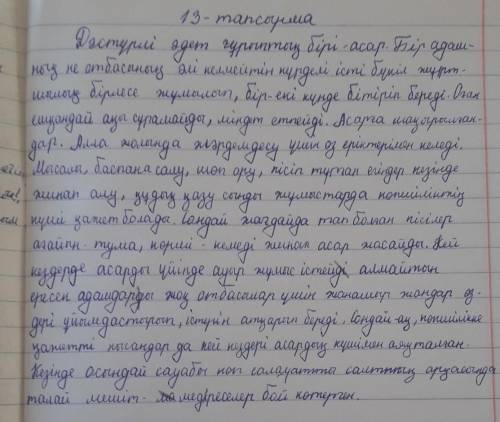 13-тапсырма
Дәстүрлі әдет ғұрыптың бірі-асар. Бір адам-
ның не отбасының әлі келмейтін күрделі істі бүкіл жұрт-
шылық бірлесе жұмылып, бір-екі күнде бітіріп береді. Оған
ешқандай ақы сұрамайды, міндет етпейді. Асарға шақырылған-
дар. Алла жолында жәрдемдесу үшін өз еріктерімен келеді.
Мысалы, баспана салу, шөп ору, пісіп тұрған егінді кезінде
жинап алу, құдық қазу сынды жұмыстарда көпшіліктің
күші қажет болады. Сондай жағдайда тап болған кісілер
ағайын-тума, көрші-көлемді жиып асар жасайды. Кей
кездерде асарды үйінде ауыр жұмыс істей алмайтын
ересек адамдары жоқ отбасылар үшін жанашыр жандар өз-
дері ұйымдастырып, істуін атқарып береді. Сондай-ақ, көпшілікке
қажетті нысандар да кей кездері асардың күшімен аяқталған.
Кезінде осындай сауабы көп салауатты салттың арқасында
талай мешіт- медреселер бой көтерген.